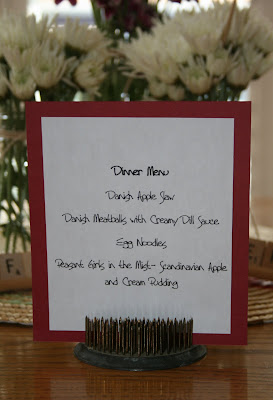 Dinner Menu
Danish Apple Slaw
Danish Meatballs with Creamy Dill Sauce
Egg Noodles
Peasant Girls in the Mist- Scandinavian Apple
and Cream Pudding